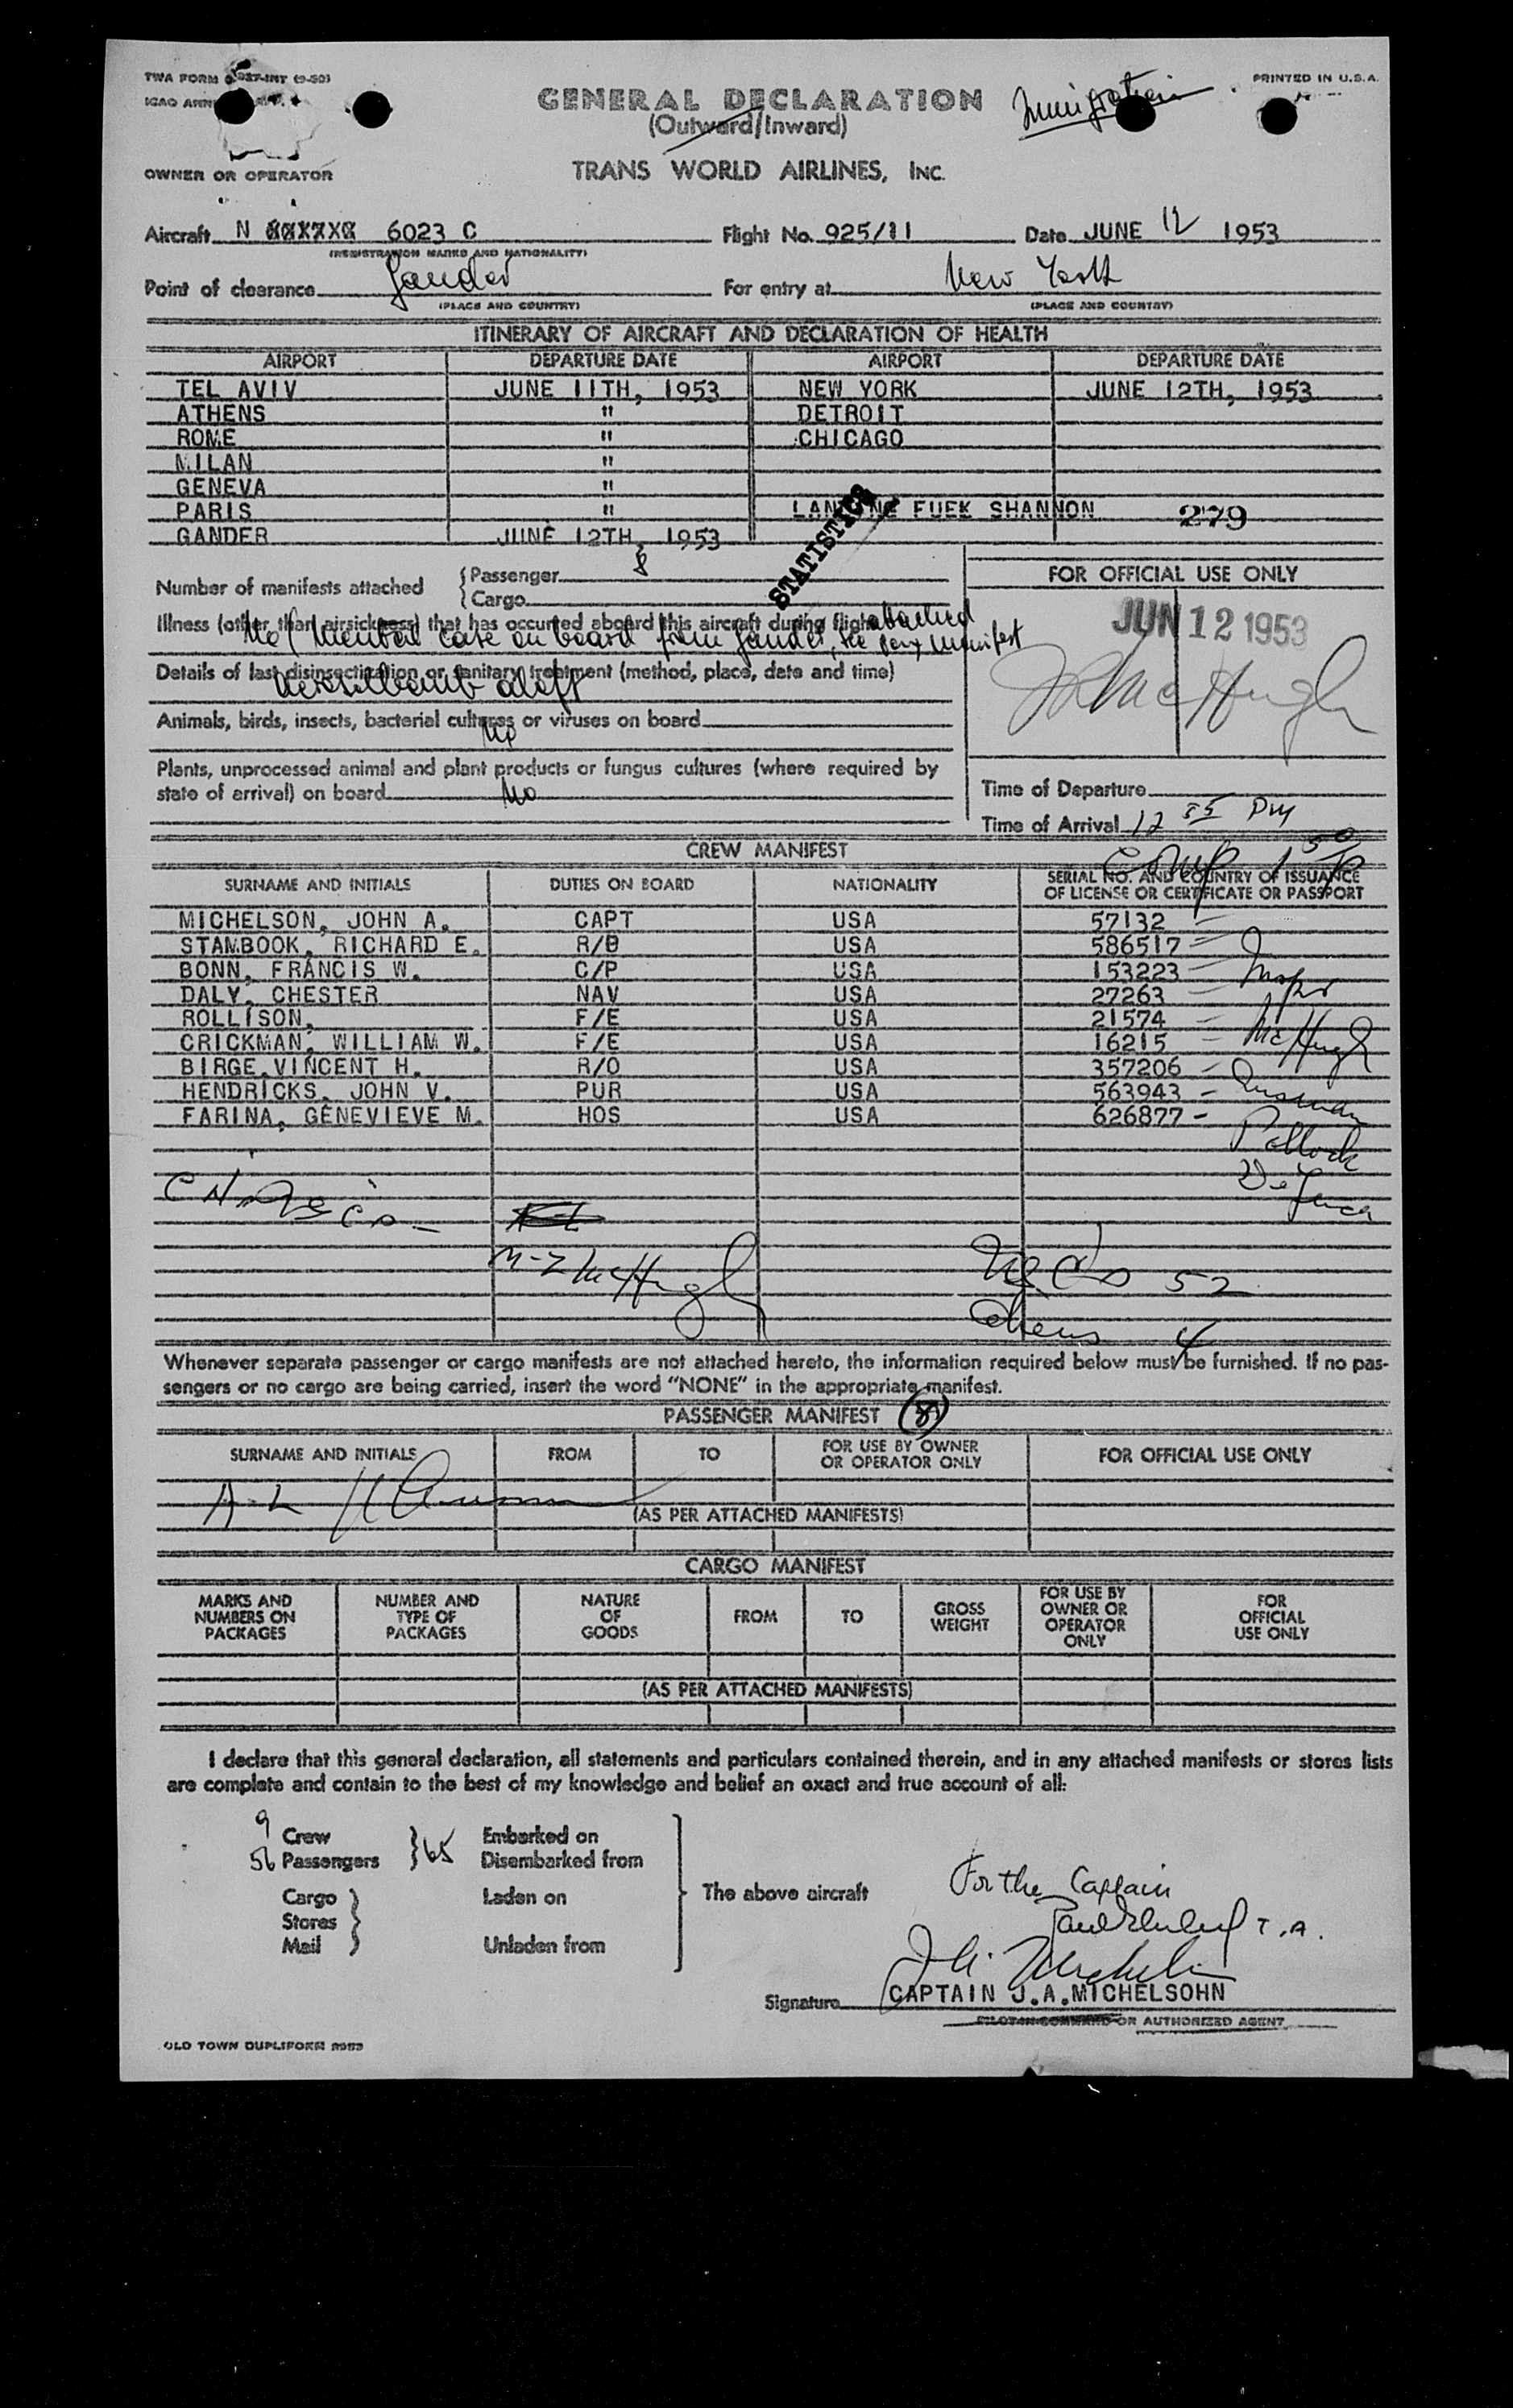 TWA FORM
PRINTED IN U.S.A.
GENERAL DECLARATION
Immigration
(Outward/Inward)
OWNER OR OPERATOR
TRANS WORLD AIRLINES, INC.
Aircraft N 6023 C Flight No. 925/11 Date JUNE 12 1953
(REGISTRATION MARKS AND NATIONALITY)
Point of clearance Gander For entry at New York
(PLACE AND COUNTRY) (PLACE AND COUNTRY)
ITINERARY OF AIRCRAFT AND DECLARATION OF HEALTH
AIRPORT DEPARTURE DATE AIRPORT DEPARTURE DATE
TEL AVIV JUNE 11TH, 1953 NEW YORK JUNE 12TH, 1953
ATHENS " DETROIT
ROME " CHICAGO
MILAN "
GENEVA "
PARIS " FUEK SHANNON 279
GANDER JUNE 12TH, 1953
STATISTICS
Number of manifests attached {Passenger 8
{Cargo
FOR OFFICIAL USE ONLY
JUN 12 1953
Illness (other than airsickness) that has occurred aboard this aircraft during flight attached
No (Mental case on board from Gander, see Manifest
Details of last disinsectization or sanitary treatment (method, place, date and time)
Aerosolbomb aloft
Animals, birds, insects, bacterial cultures or viruses on board
No
Plants, unprocessed animal and plant products or fungus cultures (where required by
state of arrival) on board No
Time of Departure
Time of Arrival 12 55 PM
CREW MANIFEST
Comp 1 50 P
SURNAME AND INITIALS DUTIES ON BOARD NATIONALITY SERIAL NO. AND COUNTRY OF ISSUANCE
OF LICENSE OR CERTIFICATE OR PASSPORT
MICHELSON, JOHN A. CAPT USA 57132
STAMBOOK, RICHARD E. R/B USA 586517
BONN, FRANCIS W. C/P USA 153223
DALY, CHESTER NAV USA 27263
ROLLISON, F/E USA 21574
CRICKMAN, WILLIAM W. F/E USA 16215
BIRGE,VINCENT H. R/O USA 357206
HENDRICKS, JOHN V. PUR USA 563943
FARINA, GENEVIEVE M. HOS USA 626877
Insps
McHugh
Pollock
M-Z McHugh
52
Aliens 4
Whenever separate passenger or cargo manifests are not attached hereto, the information required below must be furnished. If no pas-
sengers or no cargo are being carried, insert the word "NONE" in the appropriate manifest.
PASSENGER MANIFEST (8)
SURNAME AND INITIALS FROM TO FOR USE BY OWNER
OR OPERATOR ONLY FOR OFFICIAL USE ONLY
A-L
(AS PER ATTACHED MANIFESTS)
CARGO MANIFEST
MARKS AND
NUMBERS ON
PACKAGES
NUMBER AND
TYPE OF
PACKAGES
NATURE
OF
GOODS
FROM
TO
GROSS
WEIGHT
FOR USE BY
OWNER OR
OPERATOR
ONLY
FOR
OFFICIAL
USE ONLY
(AS PER ATTACHED MANIFESTS)
I declare that this general declaration, all statements and particulars contained therein, and in any attached manifests or stores lists
are complete and contain to the best of my knowledge and belief an exact and true account of all:
9 Crew } 65 Embarked on
56 Passengers Disembarked from
Cargo } Laden on
Stores
Mail Unladen from
The above aircraft
For the Captain
T.A.
Signature CAPTAIN J.A.MICHELSOHN
PILOT IN COMMAND OR AUTHORIZED AGENT
OLD TOWN DUPLIFORM